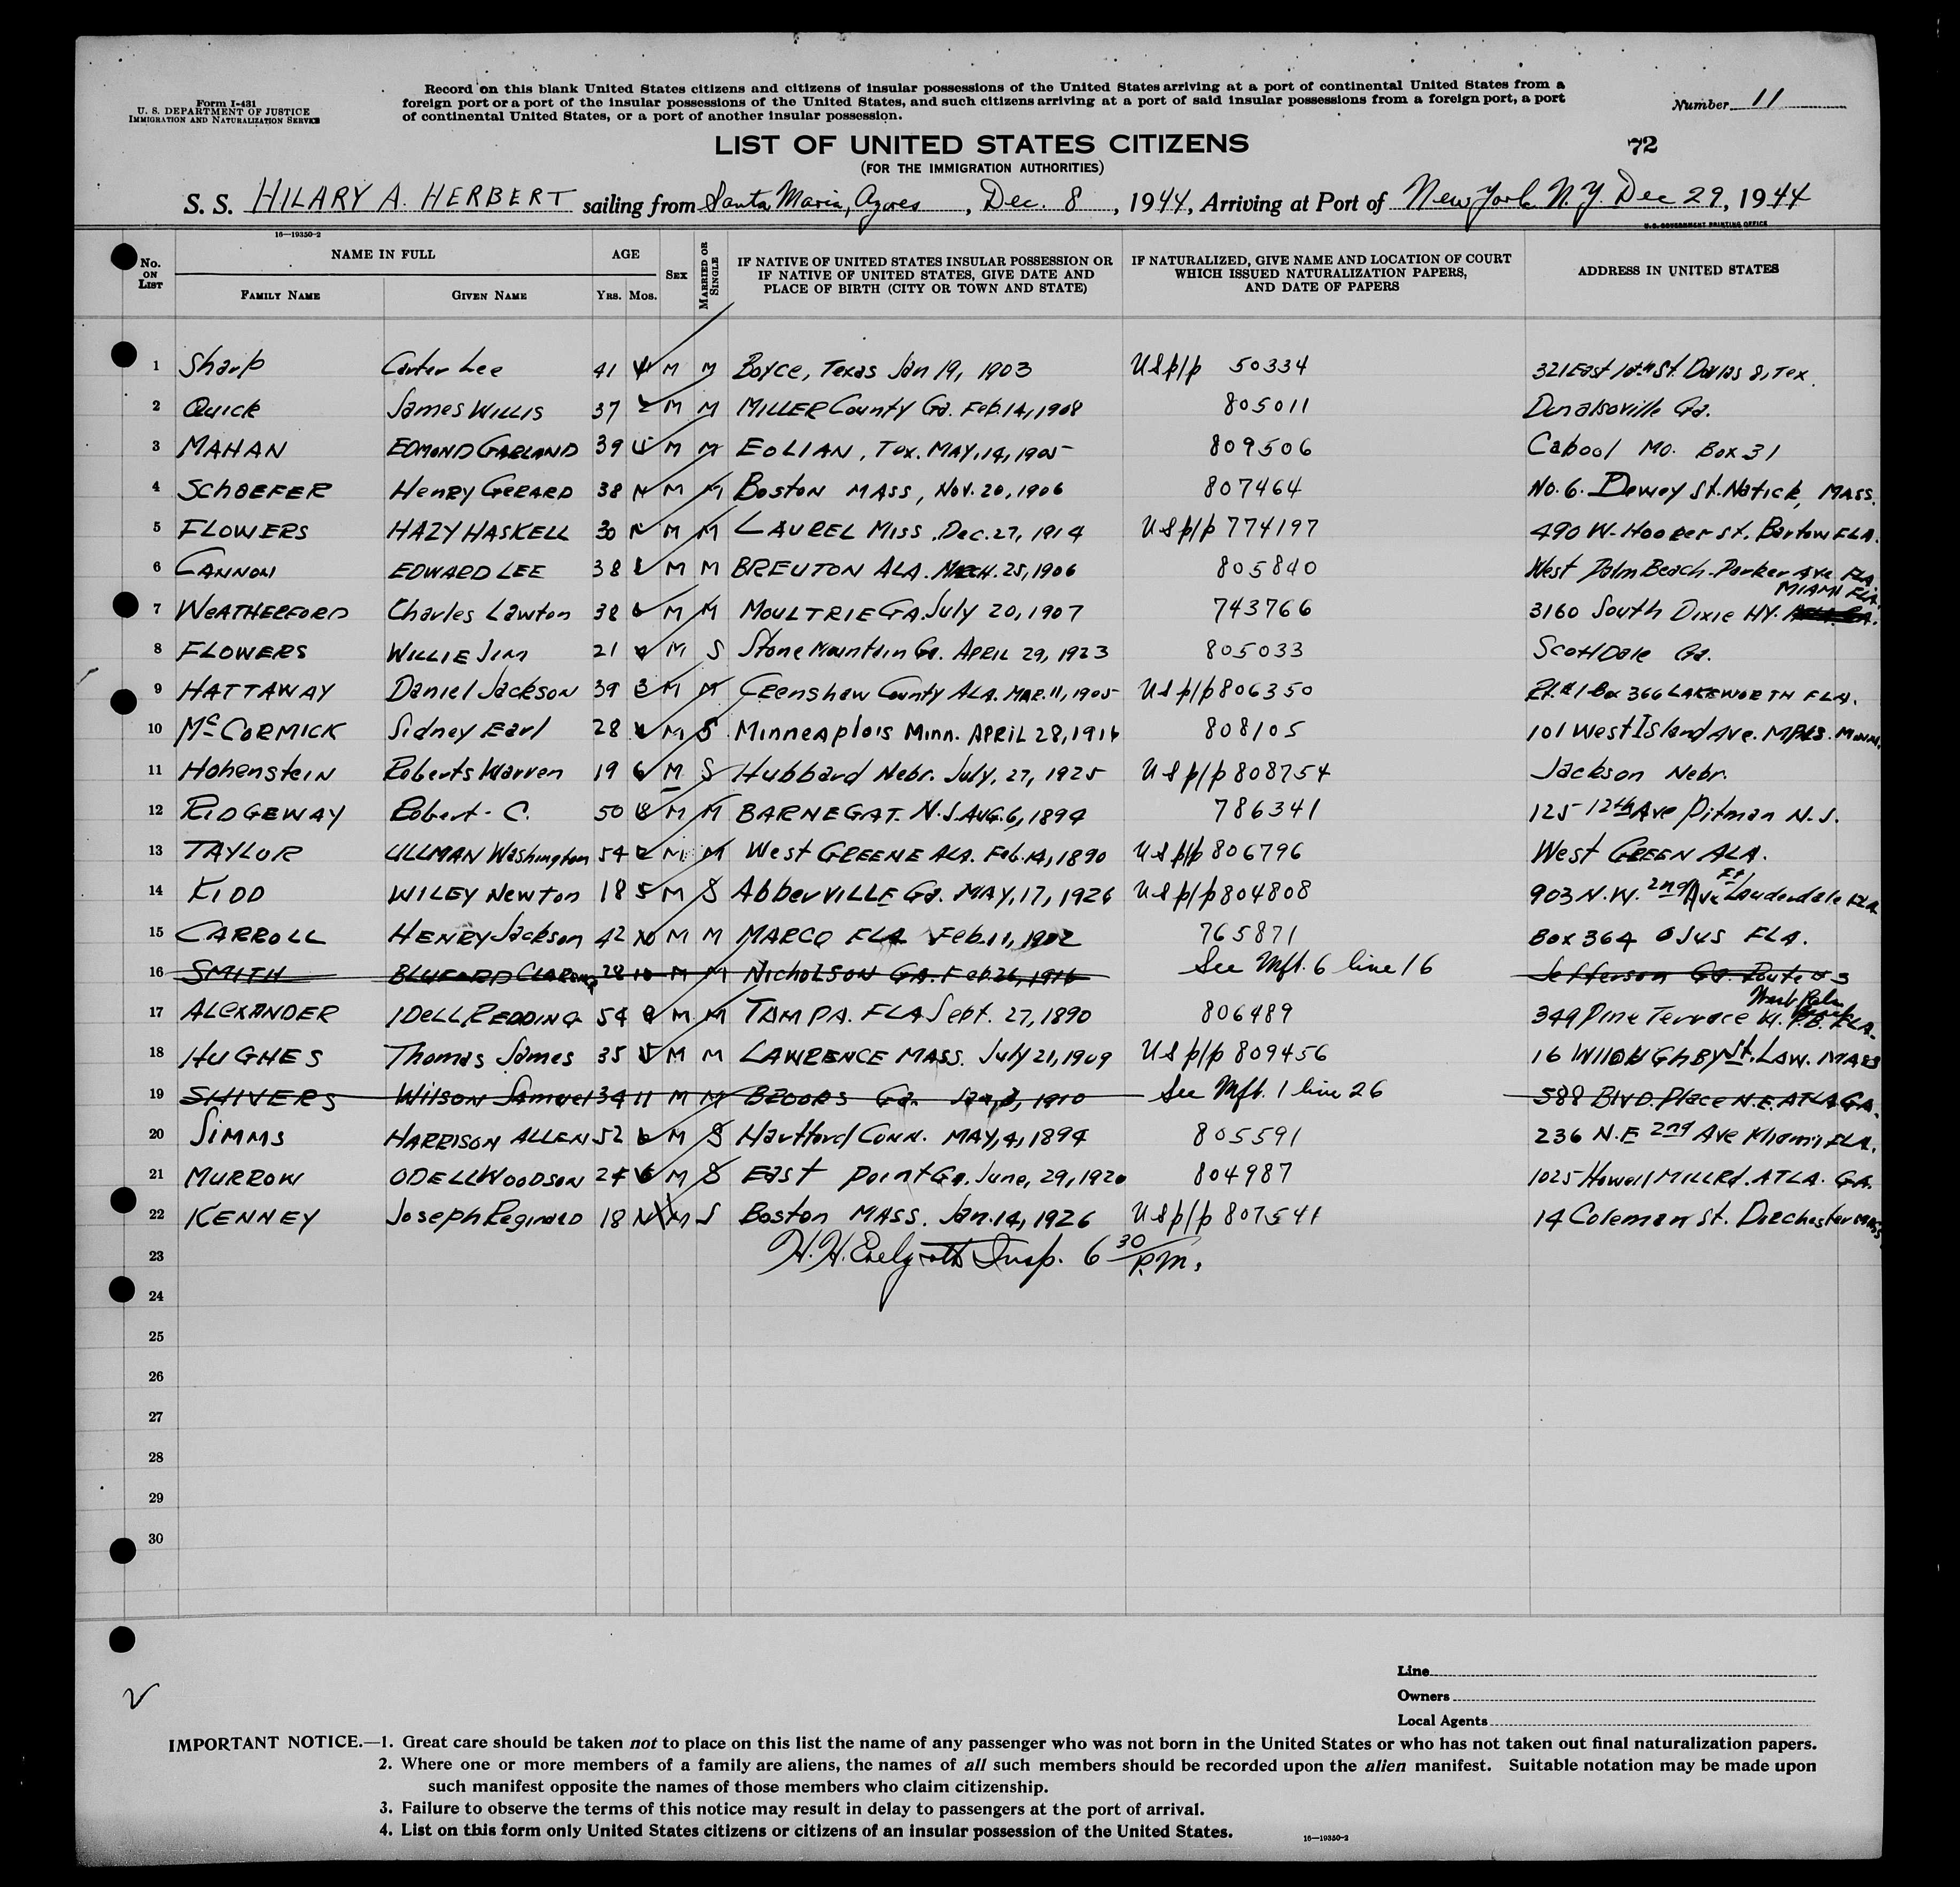 Form I-431
U. S. DEPARTMENT OF JUSTICE
IMMIGRATION AND NATURALIZATION SERVICE
Record on this blank United States citizens and citizens of insular possessions of the United States arriving at a port of continental United States from a
foreign port or a port of the insular possessions of the United States, and such citizens arriving at a port of said insular possessions from a foreign port, a port
of continental United States, or a port of another insular possession.
Number 11
LIST OF UNITED STATES CITIZENS
(FOR THE IMMIGRATION AUTHORITIES)
72
S. S. HILARY A. HERBERT sailing from Santa Maria, Azores, Dec. 8, 1944, Arriving at Port of New York N.Y. Dec 29, 1944
16—19350-2
U.S. GOVERNMENT PRINTING OFFICE
No. ON LIST
NAME IN FULL
FAMILY NAME
GIVEN NAME
AGE
YRS. MOS.
SEX
MARRIED OR SINGLE
IF NATIVE OF UNITED STATES INSULAR POSSESSION OR
IF NATIVE OF UNITED STATES, GIVE DATE AND
PLACE OF BIRTH (CITY OR TOWN AND STATE)
IF NATURALIZED, GIVE NAME AND LOCATION OF COURT
WHICH ISSUED NATURALIZATION PAPERS,
AND DATE OF PAPERS
ADDRESS IN UNITED STATES
1 Sharp Carter Lee 41 M M Boyce, Texas Jan 19, 1903 US p/p 50334 321 East 10th St. Dallas 8, Tex.
2 Quick James WILLIS 37 M M MILLER County Ga. Feb. 14, 1908 805011 Donalsoville Ga.
3 MAHAN EDMOND GARLAND 39 M M EOLIAN, Tex. MAY, 14, 1905 809506 Cabool Mo. Box 31
4 SCHOEFER Henry GERARD 38 M M Boston MASS, Nov. 20, 1906 807464 No. 6. Dewey St. Natick, MASS.
5 FLOWERS HAZY HASKELL 30 M M LAUREL Miss. Dec. 27, 1914 US p/p 774197 490 W. Hooper St. Bartow FLA.
6 CANNON EDWARD LEE 38 M M BREUTON ALA. MARCH. 25, 1906 805840 West Palm Beach. Parker Ave FLA.
7 WEATHERFORD Charles Lawton 38 M M MOULTRIE GA. July 20, 1907 743766 3160 South Dixie HY. MIAMI FLA.
8 FLOWERS WILLIE JIM 21 M S Stone Mountain Ga. APRIL 29, 1923 805033 ScottDale Ga.
9 HATTAWAY Daniel Jackson 39 3 M M Crenshaw County ALA. MAR. 11, 1905 US p/p 806350 Rt. #1 Box 366 LAKEWORTH FLA.
10 McCORMICK Sidney Earl 28 M S Minneaplois Minn. APRIL 28, 1916 808105 101 West Island Ave. MPLS. MINN.
11 Hohenstein Roberts Warren 19 6 M S Hubbard Nebr. July, 27, 1925 US p/p 808754 Jackson Nebr.
12 RIDGEWAY Robert - C. 50 M M BARNEGAT. N.J. AUG. 6, 1894 786341 125 12th Ave Pitman N.J.
13 TAYLOR ULLMAN Washington 54 M M West GREENE ALA. Feb. 14, 1890 US p/p 806796 West GREEN ALA.
14 KIDD WILEY NEWTON 18 5 M S AbbervILLE Ga. MAY, 17, 1926 US p/p 804808 903 N.W. 2nd Ave Ft Lauderdale FLA
15 CARROLL HENRY Jackson 42 10 M M MARCO FLA Feb. 11, 1902 765871 Box 364 OJUS FLA.
16 SMITH BLUFORD 28 10 M M NICHOLSON GA. Feb 26, 1916 See Mft. 6 line 16 Jefferson Ga. Route # 3
17 ALEXANDER IDELL REDDING 54 M M TAMPA. FLA Sept. 27, 1890 806489 349 Pine Terrace W. P.B. West Palm Beach FLA.
18 HUGHES Thomas James 35 5 M M LAWRENCE MASS. July 21, 1909 US p/p 809456 16 WILOUGHBY St. LAW. MASS
19 SHIVERS Wilson Samuel 34 11 M M BROOKS Ga. 1910 See Mft. 1 line 26 588 BLVD. Place N.E. ATLA GA.
20 SIMMS HARRISON ALLEN 52 M S Hartford CONN. MAY, 4, 1894 805591 236 N.E 2nd Ave Miami FLA.
21 MURROW ODELL WOODSON 24 6 M S EAST Point Ga. June, 29, 1920 804987 1025 Howell MILL Rd. ATLA. GA.
22 KENNEY Joseph Reginald 18 M S Boston MASS. Jan. 14, 1926 US p/p 807541 14 Coleman St. Dorchester MASS.
23 H. H. Insp. 6 30 P.M.
24
25
26
27
28
29
30
Line
Owners
Local Agents
IMPORTANT NOTICE.—1. Great care should be taken not to place on this list the name of any passenger who was not born in the United States or who has not taken out final naturalization papers.
2. Where one or more members of a family are aliens, the names of all such members should be recorded upon the alien manifest. Suitable notation may be made upon
such manifest opposite the names of those members who claim citizenship.
3. Failure to observe the terms of this notice may result in delay to passengers at the port of arrival.
4. List on this form only United States citizens or citizens of an insular possession of the United States.
16—19350-2